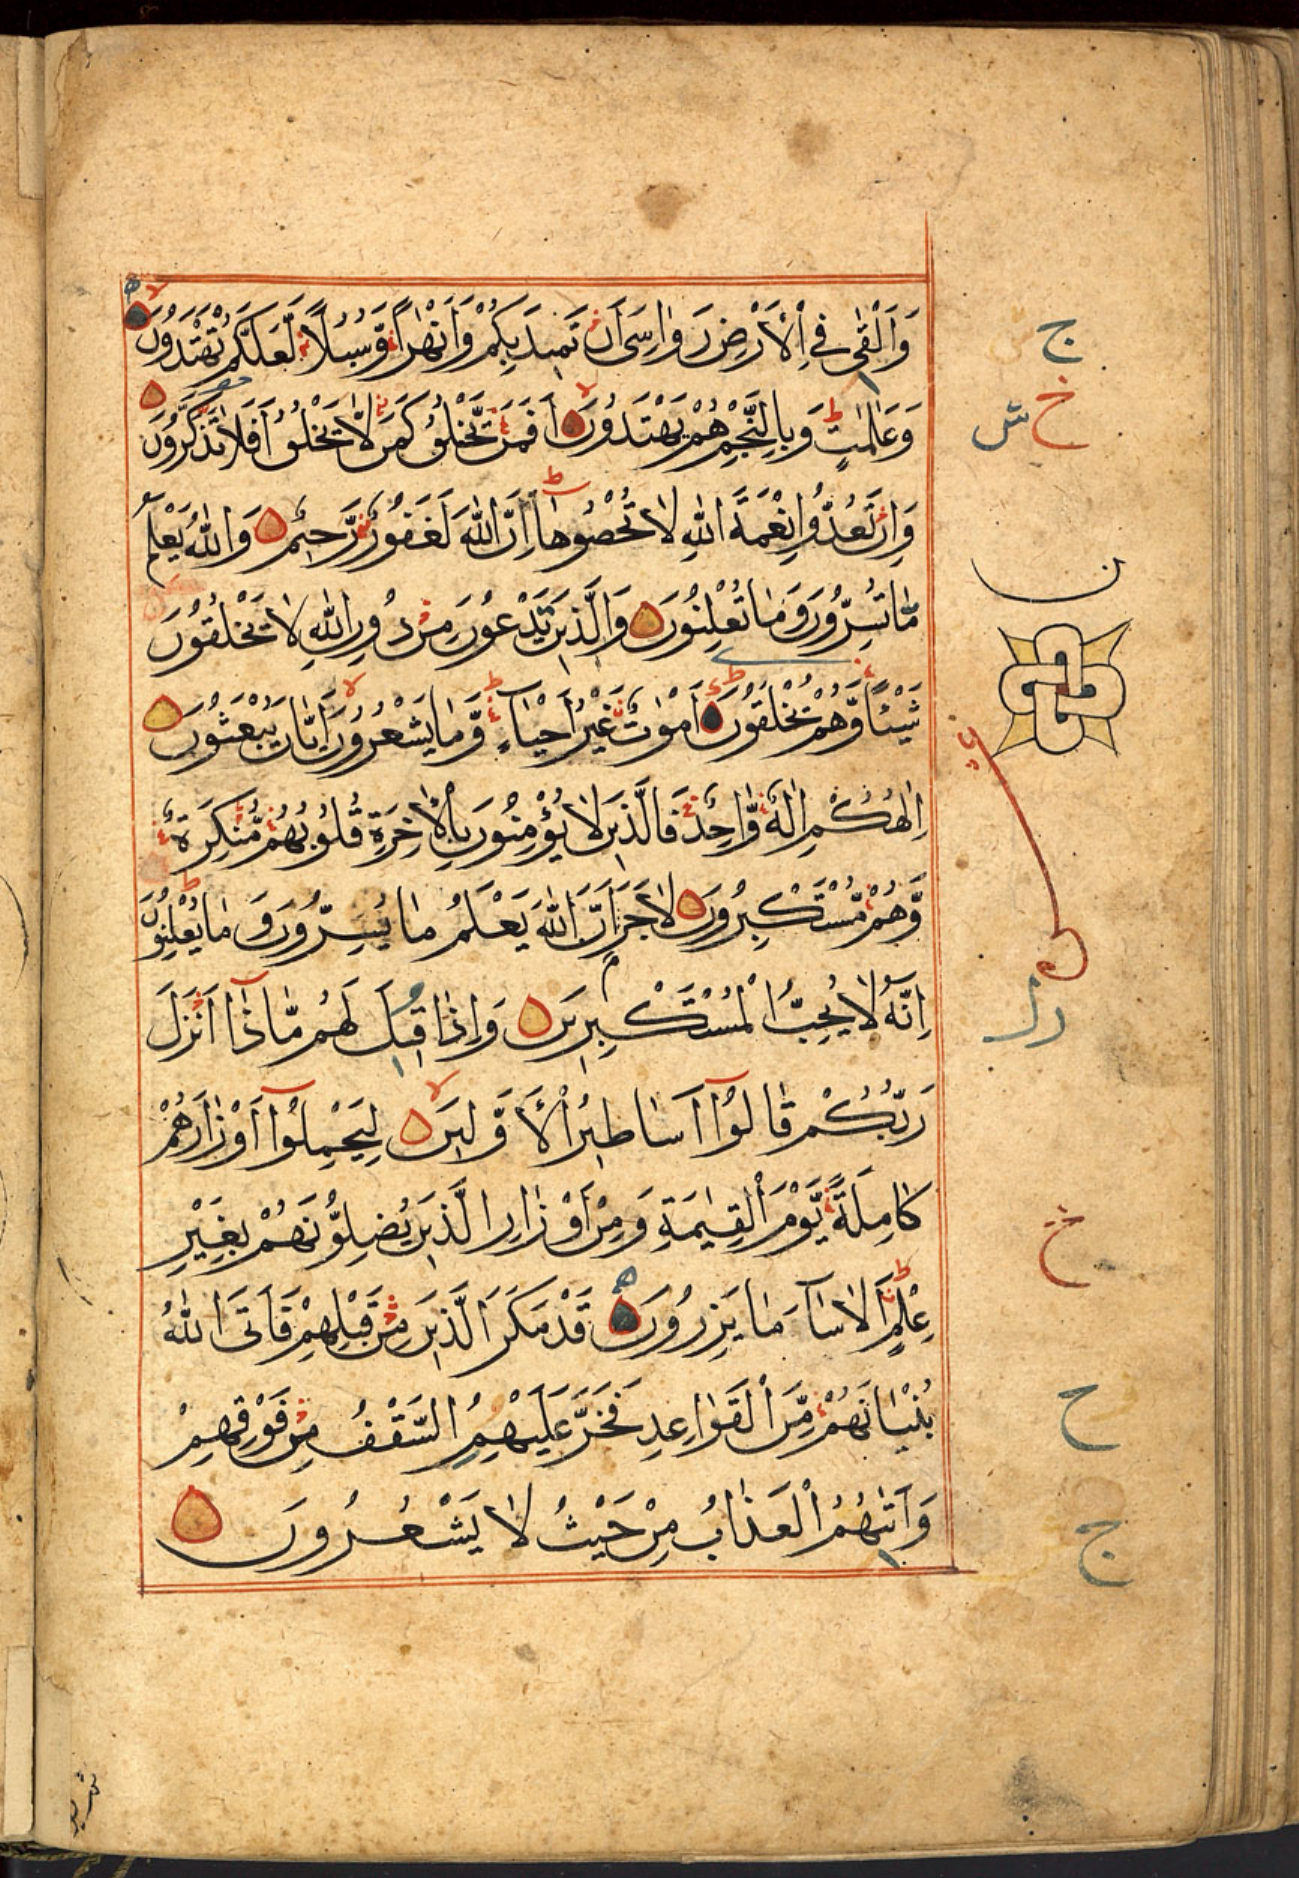 وَاَلْقٰى فِي الْاَرْضِ رَوَاسِيَ اَنْ تَمِيدَ بِكُمْ وَاَنْهٰرًا وَّسُبُلًا لَّعَلَّكُمْ تَهْتَدُونَ
وَعَلٰمٰتٍ وَبِالنَّجْمِ هُمْ يَهْتَدُونَ اَفَمَنْ يَّخْلُقُ كَمَنْ لَّا يَخْلُقُ اَفَلَا تَذَكَّرُونَ
وَاِنْ تَعُدُّوا نِعْمَةَ اللّٰهِ لَا تُحْصُوهَا اِنَّ اللّٰهَ لَغَفُورٌ رَّحِيمٌ وَاللّٰهُ يَعْلَمُ
مَا تُسِرُّونَ وَمَا تُعْلِنُونَ وَالَّذِينَ يَدْعُونَ مِنْ دُونِ اللّٰهِ لَا يَخْلُقُونَ
شَيْئًا وَّهُمْ يُخْلَقُونَ اَمْوَاتٌ غَيْرُ اَحْيَاءٍ وَّمَا يَشْعُرُونَ اَيَّانَ يُبْعَثُونَ
اِلٰهُكُمْ اِلٰهٌ وَّاحِدٌ فَالَّذِينَ لَا يُؤْمِنُونَ بِالْاٰخِرَةِ قُلُوبُهُمْ مُّنْكِرَةٌ
وَّهُمْ مُّسْتَكْبِرُونَ لَا جَرَمَ اَنَّ اللّٰهَ يَعْلَمُ مَا يُسِرُّونَ وَمَا يُعْلِنُونَ
اِنَّهُ لَا يُحِبُّ الْمُسْتَكْبِرِينَ وَاِذَا قِيلَ لَهُمْ مَّاذَا اَنْزَلَ
رَبُّكُمْ قَالُوا اَسَاطِيرُ الْاَوَّلِينَ لِيَحْمِلُوا اَوْزَارَهُمْ
كَامِلَةً يَّوْمَ الْقِيٰمَةِ وَمِنْ اَوْزَارِ الَّذِينَ يُضِلُّونَهُمْ بِغَيْرِ
عِلْمٍ اَلَا سَاءَ مَا يَزِرُونَ قَدْ مَكَرَ الَّذِينَ مِنْ قَبْلِهِمْ فَاَتَى اللّٰهُ
بُنْيَانَهُمْ مِّنَ الْقَوَاعِدِ فَخَرَّ عَلَيْهِمُ السَّقْفُ مِنْ فَوْقِهِمْ
وَاَتٰىهُمُ الْعَذَابُ مِنْ حَيْثُ لَا يَشْعُرُونَ
ج
خ ش
ن
خ
ح
ج